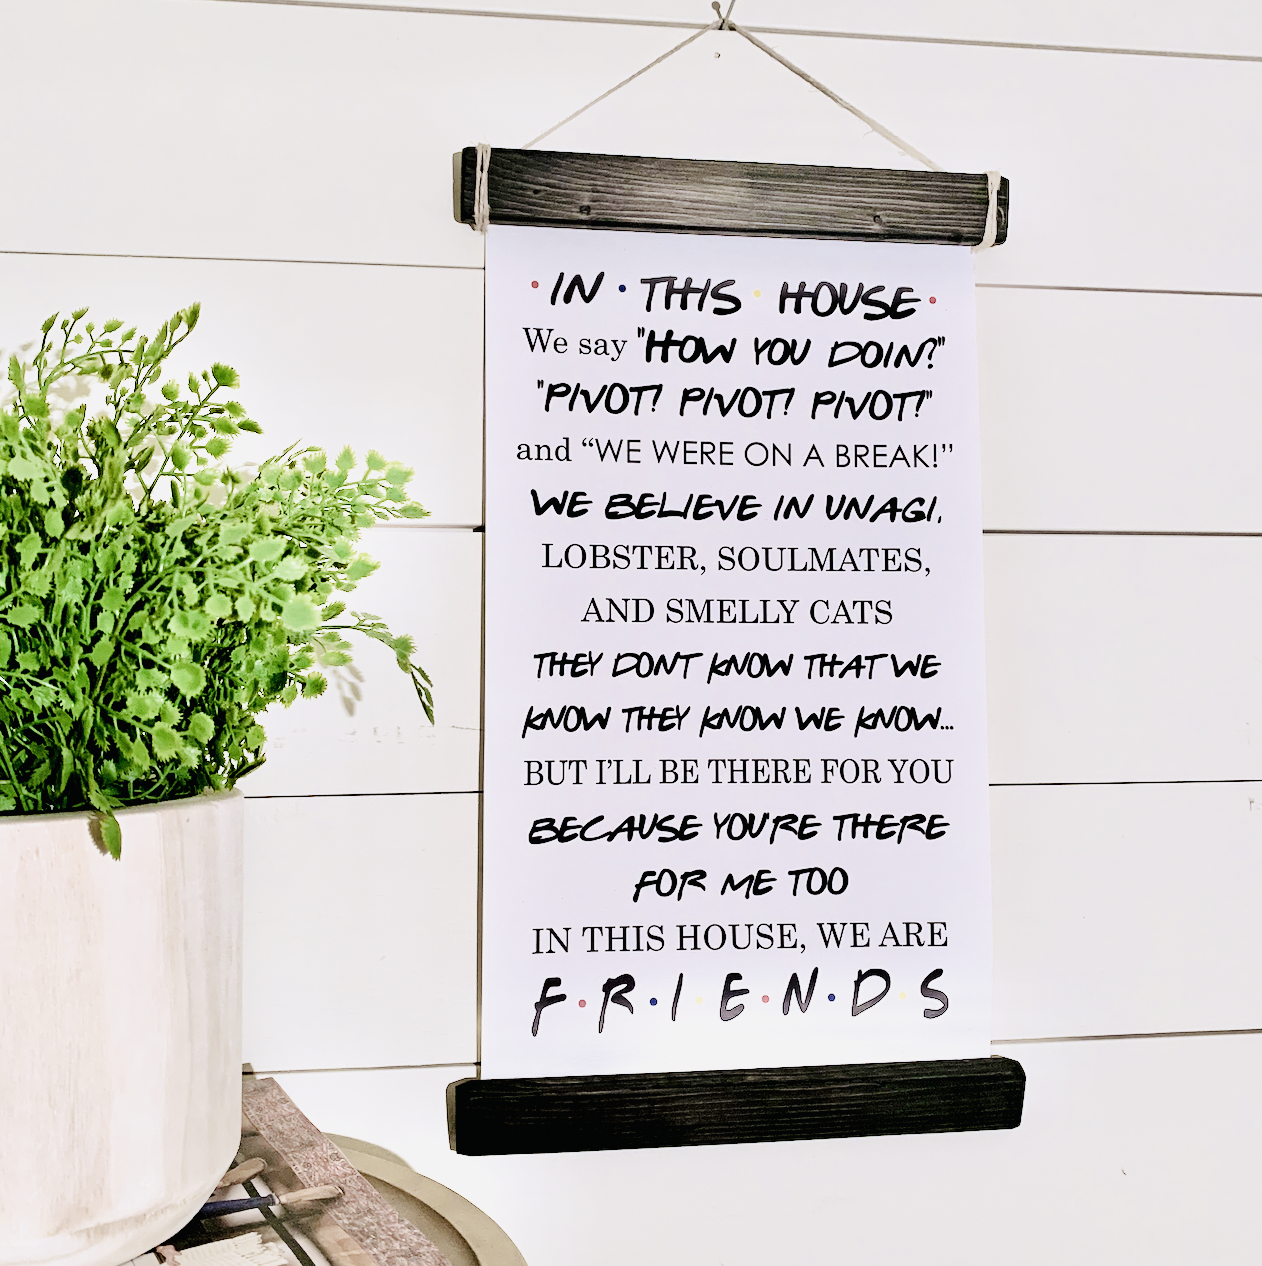 • IN • THIS • HOUSE •
We say "HOW YOU DOIN?"
"PIVOT! PIVOT! PIVOT!"
and “WE WERE ON A BREAK!”
WE BELIEVE IN UNAGI,
LOBSTER, SOULMATES,
AND SMELLY CATS
THEY DONT KNOW THAT WE
KNOW THEY KNOW WE KNOW...
BUT I'LL BE THERE FOR YOU
BECAUSE YOU'RE THERE
FOR ME TOO
IN THIS HOUSE, WE ARE
F•R•I•E•N•D•S